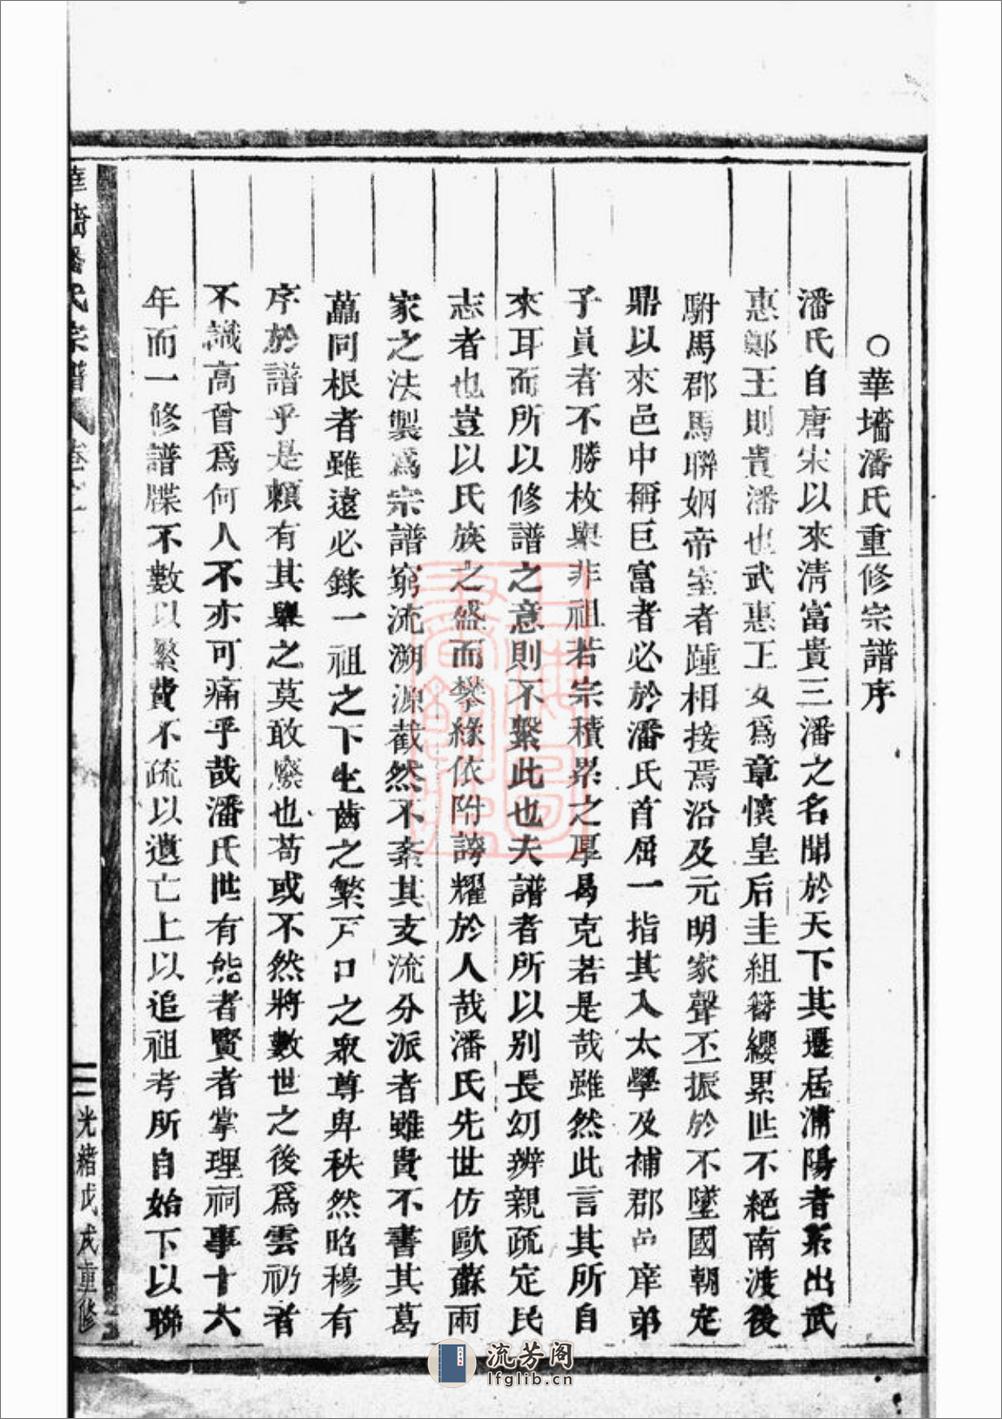 ○華墻潘氏重修宗譜序
潘氏自唐宋以來淸富貴三潘之名聞於天下其遷居浦陽者系出武
惠鄭王則貴潘也武惠王女爲章懷皇后圭組簪纓累世不絕南渡後
駙馬郡馬聯姻帝室者踵相接焉沿及元明家聲丕振於不墜國朝定
鼎以來邑中稱巨富者必於潘氏首屈一指其入太學及補郡邑庠弟
子員者不勝枚舉非祖若宗積累之厚曷克若是哉雖然此言其所自
來耳而所以修譜之意則不繫此也夫譜者所以别長幼辨親疏定民
志者也豈以氏族之盛而攀緣依附誇耀於人哉潘氏先世仿歐蘇兩
家之法製爲宗譜窮流溯源截然不紊其支流分派者雖貴不書其葛
藟同根者雖遠必錄一祖之下生齒之繁戶口之衆尊卑秩然昭穆有
序於譜乎是賴有其舉之莫敢廢也苟或不然將數世之後爲雲礽者
不識高曾爲何人不亦可痛乎哉潘氏世有能者賢者掌理祠事十六
年而一修譜牒不數以繁費不疏以遺亡上以追祖考所自始下以聯
華墻潘氏宗譜 卷之
二 光緒戊戌重修
流芳阁
lfglib.cn